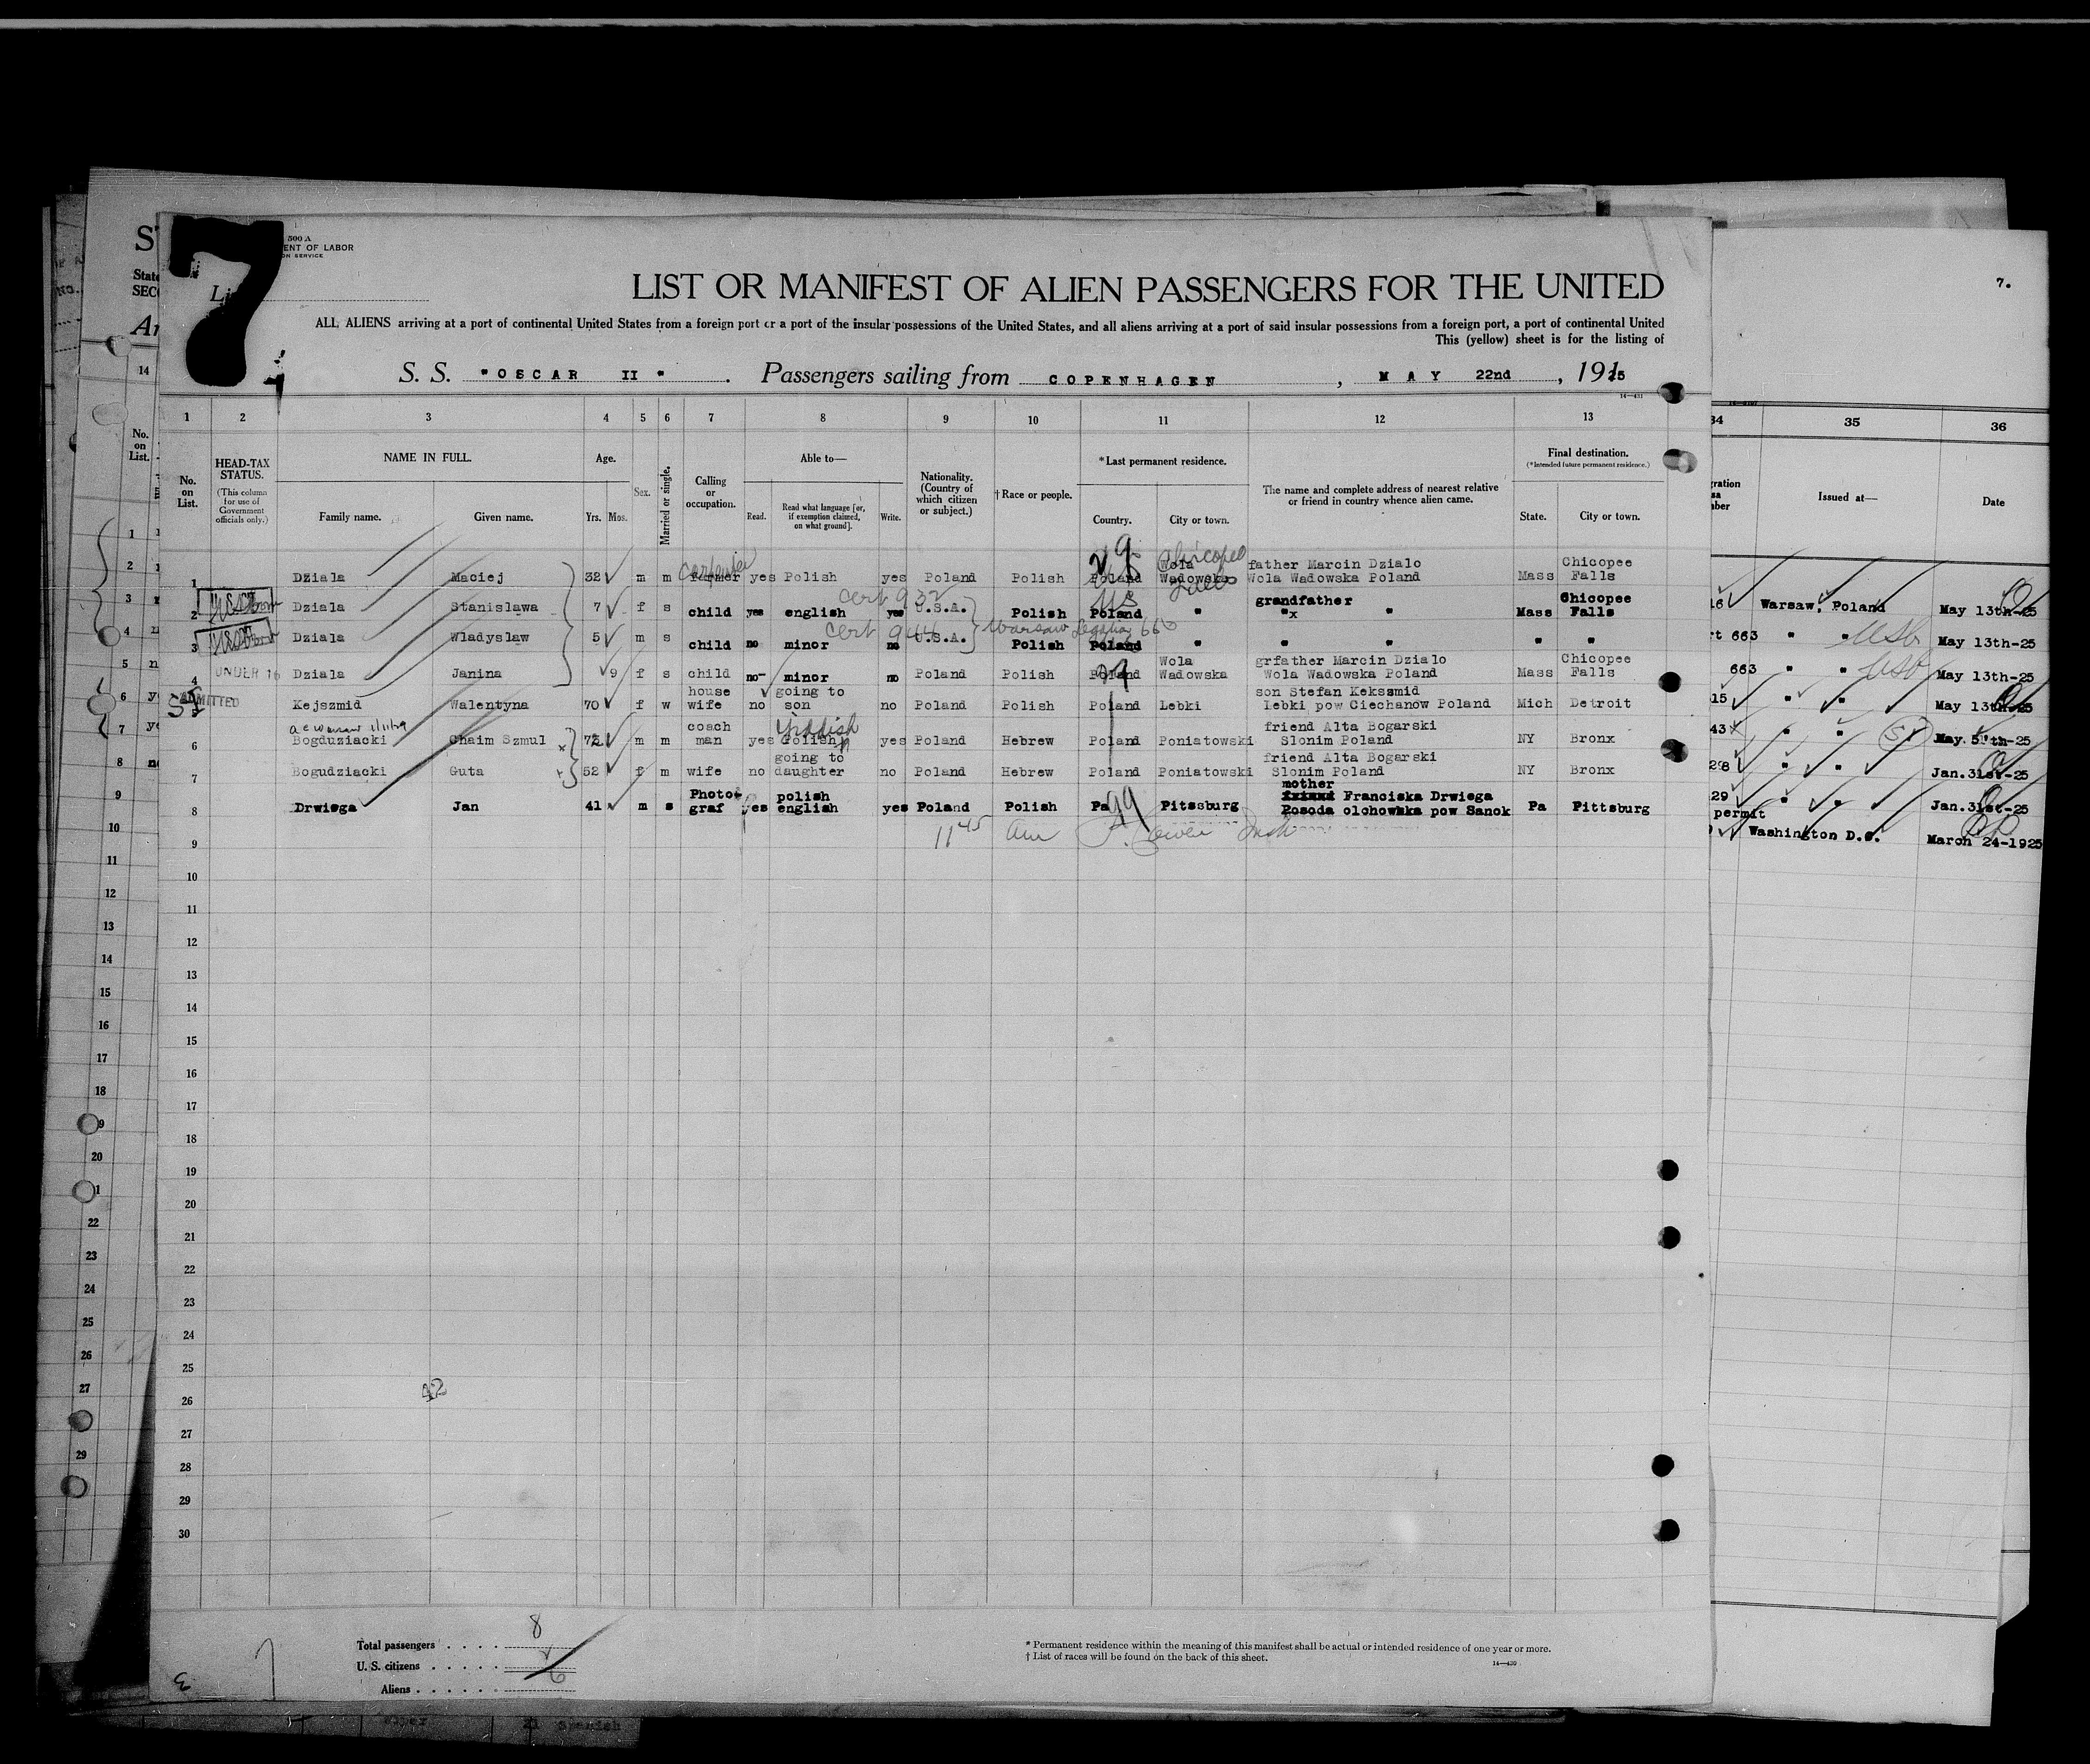 7
500 A
ENT OF LABOR
ON SERVICE
LIST OR MANIFEST OF ALIEN PASSENGERS FOR THE UNITED
7.
ALL ALIENS arriving at a port of continental United States from a foreign port or a port of the insular possessions of the United States, and all aliens arriving at a port of said insular possessions from a foreign port, a port of continental United
This (yellow) sheet is for the listing of
S. S. "OSCAR II" . Passengers sailing from COPENHAGEN , MAY 22nd , 1925
14—431
1 2 3 4 5 6 7 8 9 10 11 12 13
34 35 36
No. on List.
HEAD-TAX STATUS.
(This column for use of Government officials only.)
NAME IN FULL.
Family name. Given name.
Age.
Yrs. Mos.
Sex.
Married or single.
Calling or occupation.
Able to—
Read. Read what language [or, if exemption claimed, on what ground]. Write.
Nationality. (Country of which citizen or subject.)
†Race or people.
*Last permanent residence.
Country. City or town.
The name and complete address of nearest relative or friend in country whence alien came.
Final destination.
(*Intended future permanent residence.)
State. City or town.
Issued at— Date
1 Dziala Maciej 32 m m farmer carpenter yes Polish yes Poland Polish Poland Wola Wadowska Chicopee Falls father Marcin Dzialo Wola Wadowska Poland Mass Chicopee Falls
2 Dziala Stanislawa 7 f s child yes english cert 932 yes U.S.A. Polish Poland US " grandfather "x " Mass Chicopee Falls
3 Dziala Wladyslaw 5 m s child no minor cert 944 no U.S.A. Polish Warsaw Poland " " " " "
4 UNDER 16 Dziala Janina 9 f s child no minor no Poland Polish Poland Wola Wadowska grfather Marcin Dzialo Wola Wadowska Poland Mass Chicopee Falls
5 ADMITTED SI Kejszmid Walentyna 70 f w house wife no going to son no Poland Polish Poland Lebki son Stefan Kekssmid Lebki pow Ciechanów Poland Mich Detroit
6 Bogduziacki Chaim Szmul 72 m m coach man yes Polish Yiddish yes Poland Hebrew Poland Poniatowski friend Alta Bogarski Slonim Poland NY Bronx
7 Bogudziacki Guta 52 f m wife no going to daughter no Poland Hebrew Poland Poniatowski friend Alta Bogarski Slonim Poland NY Bronx
8 Drwiega Jan 41 m s Photograf yes polish english yes Poland Polish Pa 99 Pitssburg mother Franciska Drwiega Posoda olchowska pow Sanok Pa Pittsburg
9 11 45 am
16 Warsaw. Poland May 13th-25
663 " " USb May 13th-25
663 " " USb May 13th-25
15 " " May 13th-25
43 " " SI May. 5th-25
298 " " Jan.31st-25
29 " " Jan.31st-25
permit
Washington D.C. March 24-1925
10
11
12
13
14
15
16
17
18
19
20
21
22
23
24
25
42
26
27
28
29
30
Total passengers . . . . 8
U. S. citizens . . . . . 2
Aliens . . . . . . 6
* Permanent residence within the meaning of this manifest shall be actual or intended residence of one year or more.
† List of races will be found on the back of this sheet.
14—430
21 Spanish